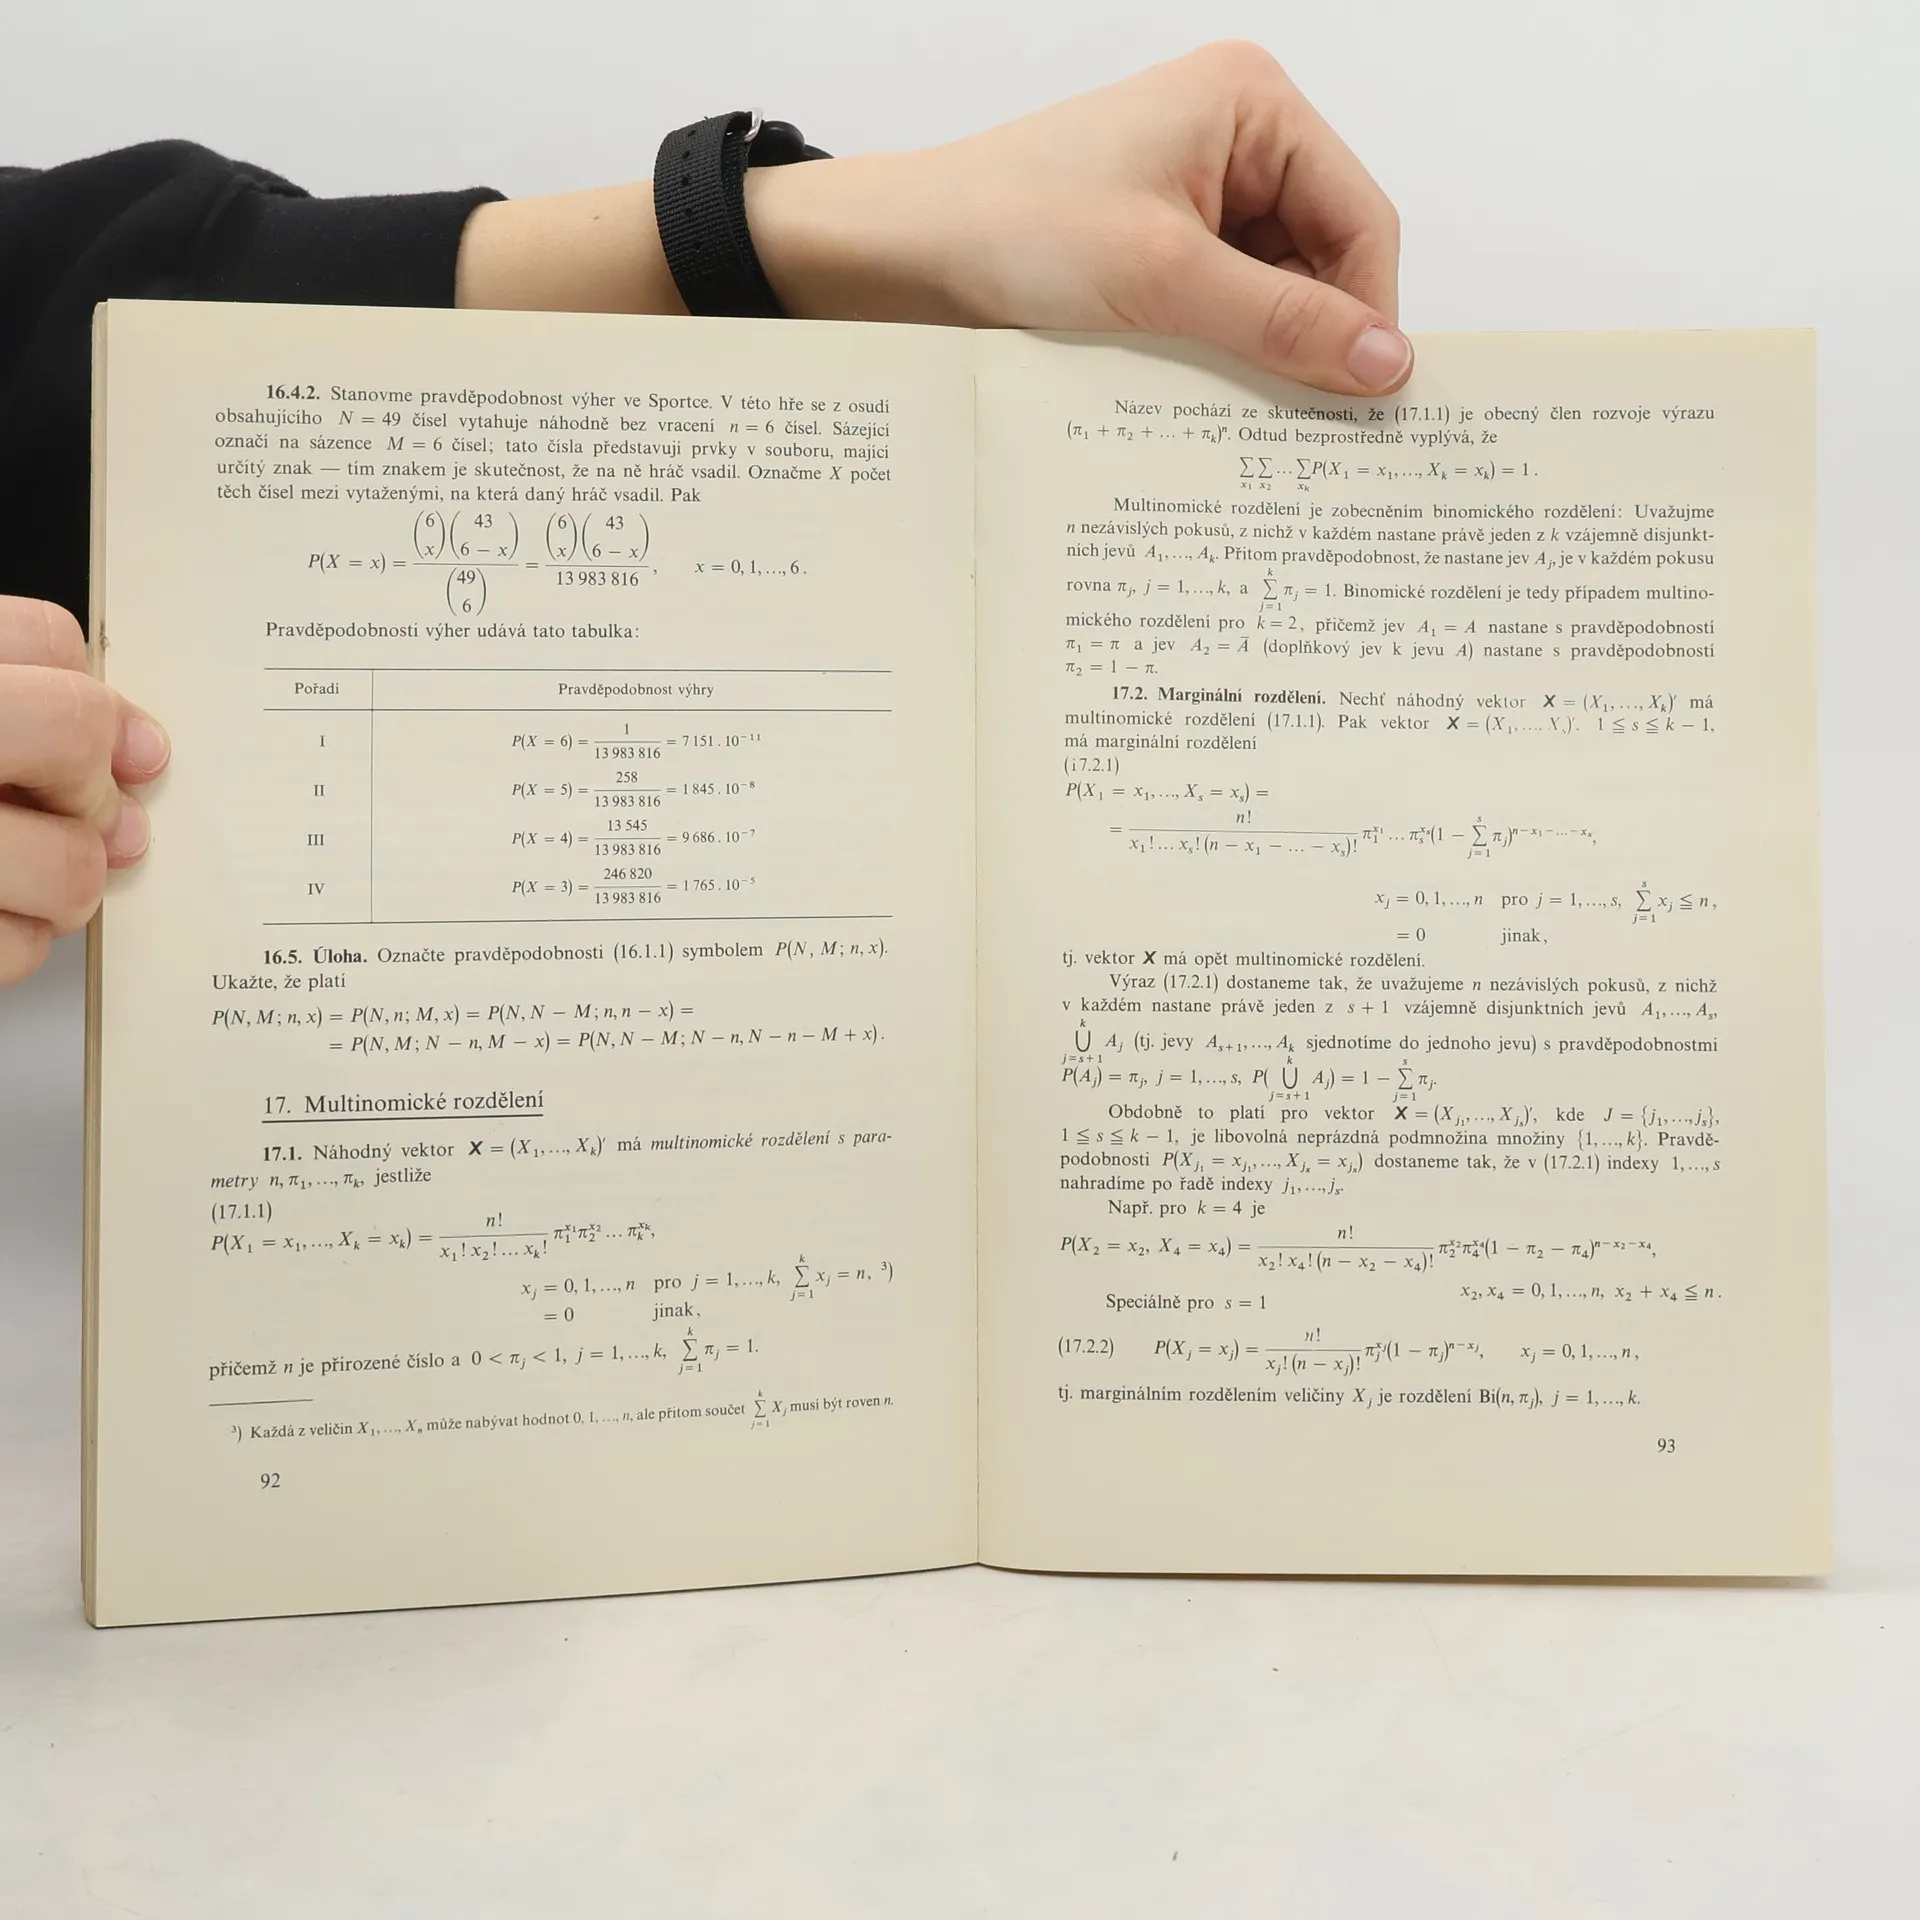 16.4.2. Stanovme pravděpodobnost výher ve Sportce. V této hře se z osudí
obsahujícího N = 49 čísel vytahuje náhodně bez vracení n = 6 čísel. Sázející
označí na sázence M = 6 čísel; tato čísla představují prvky v souboru, mající
určitý znak — tím znakem je skutečnost, že na ně hráč vsadil. Označme X počet
těch čísel mezi vytaženými, na která daný hráč vsadil. Pak
P(X = x) = \frac{\binom{6}{x}\binom{43}{6-x}}{\binom{49}{6}} = \frac{\binom{6}{x}\binom{43}{6-x}}{13 983 816}, x = 0, 1, ..., 6.
Pravděpodobnosti výher udává tato tabulka:
Pořadí Pravděpodobnost výhry
I P(X = 6) = \frac{1}{13 983 816} = 7 151 . 10^{-11}
II P(X = 5) = \frac{258}{13 983 816} = 1 845 . 10^{-8}
III P(X = 4) = \frac{13 545}{13 983 816} = 9 686 . 10^{-7}
IV P(X = 3) = \frac{246 820}{13 983 816} = 1 765 . 10^{-5}
16.5. Úloha. Označte pravděpodobnosti (16.1.1) symbolem P(N, M; n, x).
Ukažte, že platí
P(N, M; n, x) = P(N, n; M, x) = P(N, N − M; n, n − x) =
= P(N, M; N − n, M − x) = P(N, N − M; N − n, N − n − M + x).
17. Multinomické rozdělení
17.1. Náhodný vektor X = (X_1, ..., X_k)' má multinomické rozdělení s para-
metry n, π_1, ..., π_k, jestliže
(17.1.1)
P(X_1 = x_1, ..., X_k = x_k) = \frac{n!}{x_1! x_2! ... x_k!} π_1^{x_1} π_2^{x_2} ... π_k^{x_k},
x_j = 0, 1, ..., n pro j = 1, ..., k, \sum_{j=1}^{k} x_j = n, ³)
= 0 jinak,
přičemž n je přirozené číslo a 0 < π_j < 1, j = 1, ..., k, \sum_{j=1}^{k} π_j = 1.
³) Každá z veličin X_1, ..., X_n může nabývat hodnot 0, 1, ..., n, ale přitom součet \sum_{j=1}^{k} X_j musí být roven n.
92
Název pochází ze skutečnosti, že (17.1.1) je obecný člen rozvoje výrazu
(π_1 + π_2 + ... + π_k)^n. Odtud bezprostředně vyplývá, že
\sum_{x_1} \sum_{x_2} ... \sum_{x_k} P(X_1 = x_1, ..., X_k = x_k) = 1.
Multinomické rozdělení je zobecněním binomického rozdělení: Uvažujme
n nezávislých pokusů, z nichž v každém nastane právě jeden z k vzájemně disjunkt-
ních jevů A_1, ..., A_k. Přitom pravděpodobnost, že nastane jev A_j, je v každém pokusu
rovna π_j, j = 1, ..., k, a \sum_{j=1}^{k} π_j = 1. Binomické rozdělení je tedy případem multino-
mického rozdělení pro k = 2, přičemž jev A_1 = A nastane s pravděpodobností
π_1 = π a jev A_2 = Ā (doplňkový jev k jevu A) nastane s pravděpodobností
π_2 = 1 − π.
17.2. Marginální rozdělení. Nechť náhodný vektor X = (X_1, ..., X_k)' má
multinomické rozdělení (17.1.1). Pak vektor X = (X_1, ... X_s)'. 1 ≦ s ≦ k − 1,
má marginální rozdělení
(17.2.1)
P(X_1 = x_1, ..., X_s = x_s) =
= \frac{n!}{x_1! ... x_s! (n − x_1 − ... − x_s)!} π_1^{x_1} ... π_s^{x_s} (1 − \sum_{j=1}^{s} π_j)^{n−x_1−...−x_s},
x_j = 0, 1, ..., n pro j = 1, ..., s, \sum_{j=1}^{s} x_j ≦ n,
= 0 jinak,
tj. vektor X má opět multinomické rozdělení.
Výraz (17.2.1) dostaneme tak, že uvažujeme n nezávislých pokusů, z nichž
v každém nastane právě jeden z s + 1 vzájemně disjunktních jevů A_1, ..., A_s,
\bigcup_{j=s+1}^{k} A_j (tj. jevy A_{s+1}, ..., A_k sjednotíme do jednoho jevu) s pravděpodobnostmi
P(A_j) = π_j, j = 1, ..., s, P(\bigcup_{j=s+1}^{k} A_j) = 1 − \sum_{j=1}^{s} π_j.
Obdobně to platí pro vektor X = (X_{j_1}, ..., X_{j_s})', kde J = {j_1, ..., j_s},
1 ≦ s ≦ k − 1, je libovolná neprázdná podmnožina množiny {1, ..., k}. Pravdě-
podobnosti P(X_{j_1} = x_{j_1}, ..., X_{j_s} = x_{j_s}) dostaneme tak, že v (17.2.1) indexy 1, ..., s
nahradíme po řadě indexy j_1, ..., j_s.
Např. pro k = 4 je
P(X_2 = x_2, X_4 = x_4) = \frac{n!}{x_2! x_4! (n − x_2 − x_4)!} π_2^{x_2} π_4^{x_4} (1 − π_2 − π_4)^{n−x_2−x_4},
x_2, x_4 = 0, 1, ..., n, x_2 + x_4 ≦ n.
Speciálně pro s = 1
(17.2.2) P(X_j = x_j) = \frac{n!}{x_j! (n − x_j)!} π_j^{x_j} (1 − π_j)^{n−x_j}, x_j = 0, 1, ..., n,
tj. marginálním rozdělením veličiny X_j je rozdělení Bi(n, π_j), j = 1, ..., k.
93